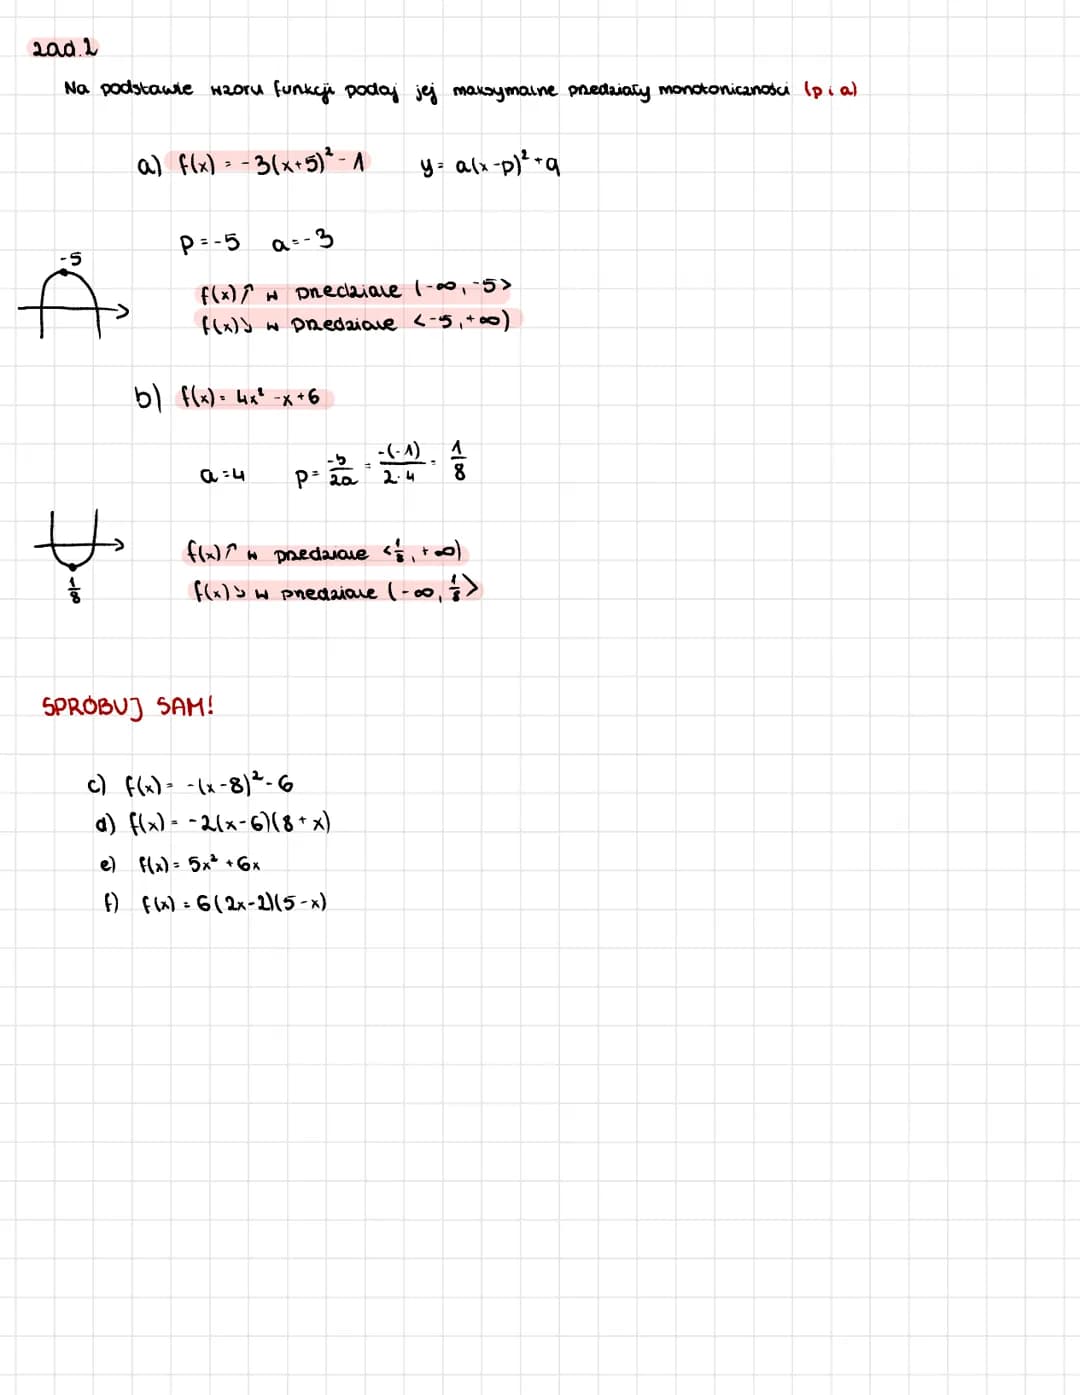 zad.2
Na podstawie wzoru funkcji podaj jej maksymalne przedziały monotoniczności (p i a)
a) f(x) = -3(x+5)² - 1    y = a(x-p)² + q
p = -5    a = -3
-5
f(x)↗ w przedziale (-∞, -5>
f(x)↘ w przedziale <-5, +∞)
b) f(x) = 4x² - x + 6
a = 4    p = -b/2a = -(-1)/2·4 = 1/8
f(x)↗ w przedziale <1/8, +∞)
1/8
f(x)↘ w przedziale (-∞, 1/8>
SPRÓBUJ SAM!
c) f(x) = -(x-8)² - 6
d) f(x) = -2(x-6)(8+x)
e) f(x) = 5x² + 6x
f) f(x) = 6(2x-2)(5-x)